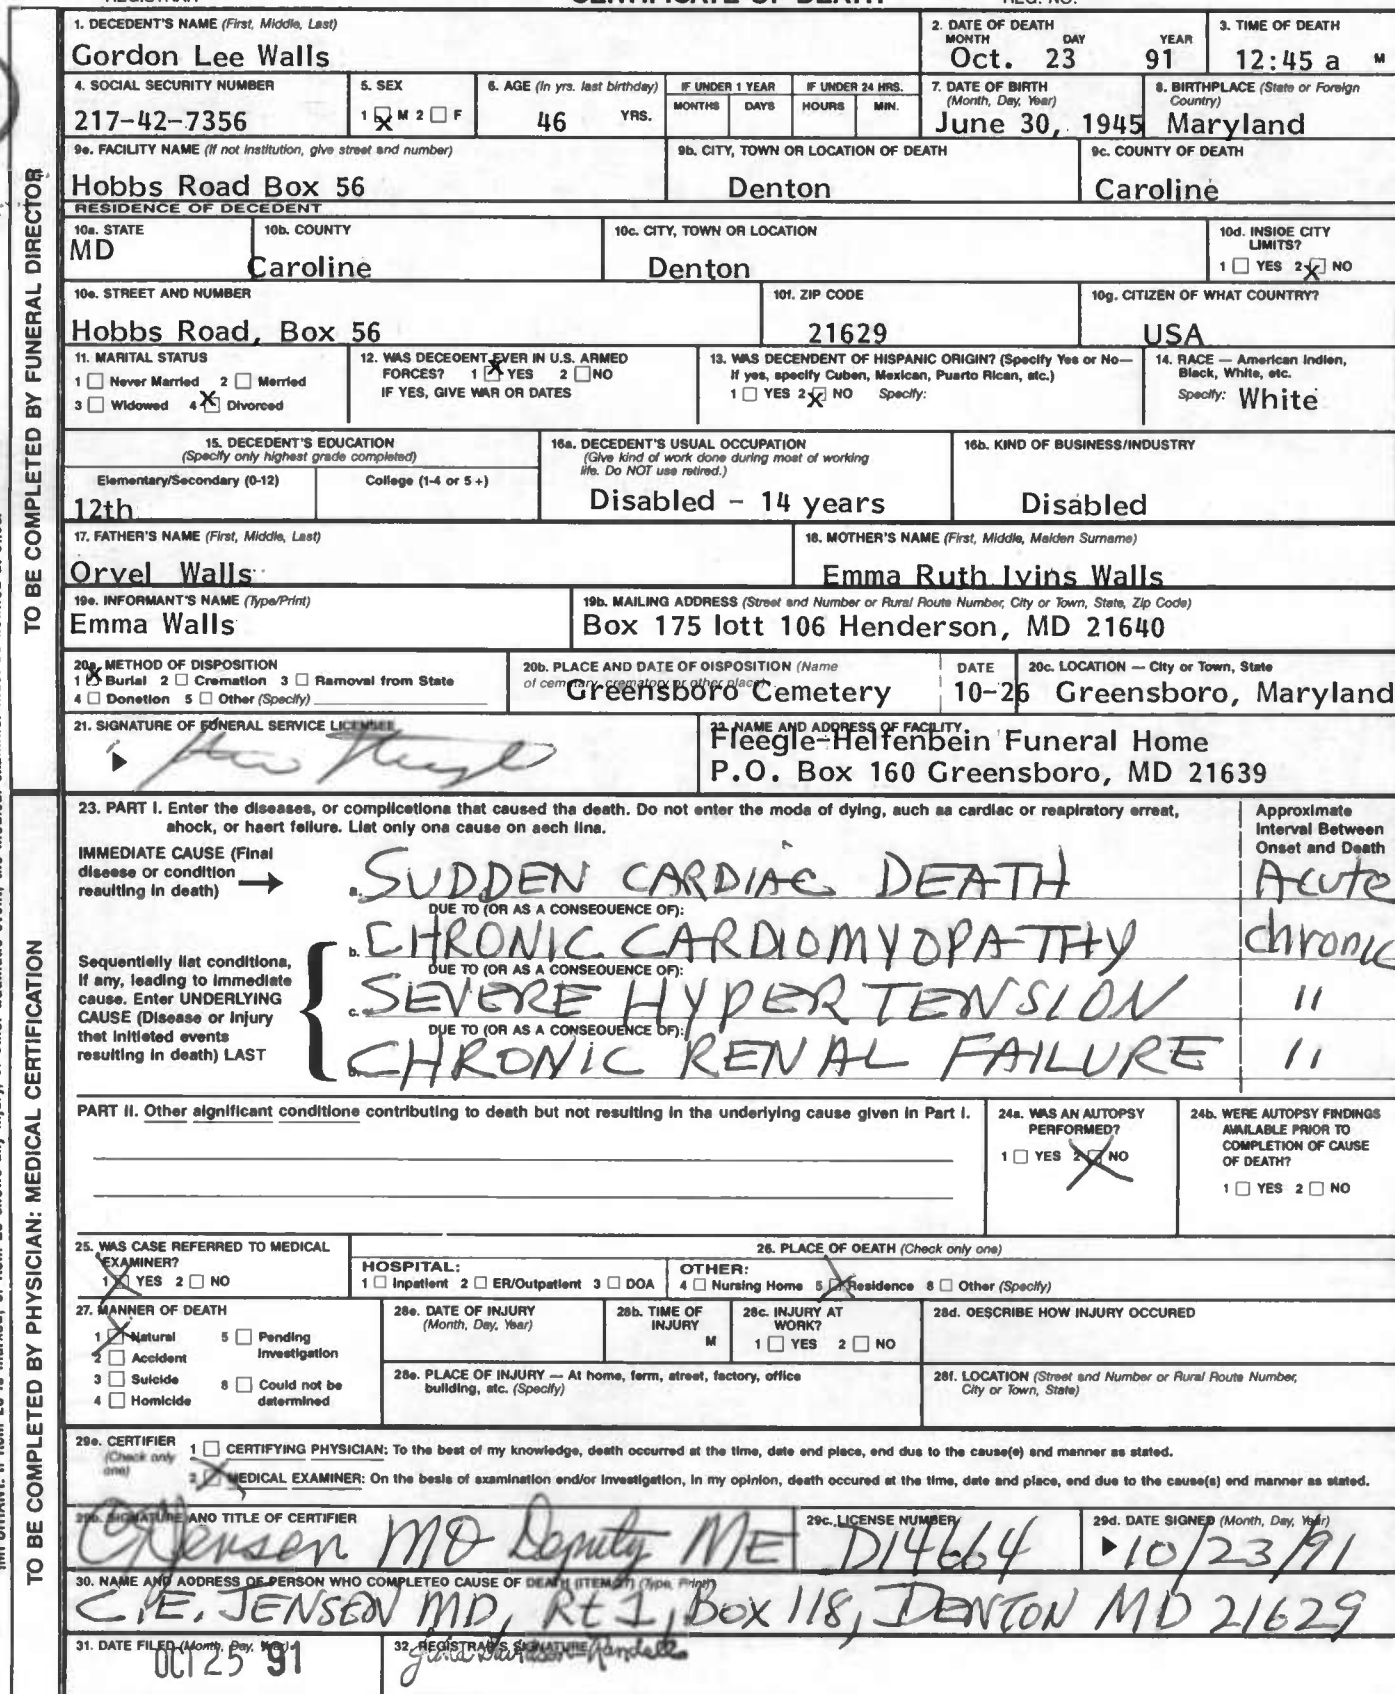 CERTIFICATE OF DEATH
1. DECEDENT'S NAME (First, Middle, Last)
Gordon Lee Walls
2. DATE OF DEATH
MONTH DAY YEAR
Oct. 23 91
3. TIME OF DEATH
12:45 a M
4. SOCIAL SECURITY NUMBER
217-42-7356
5. SEX
1 ☒ M 2 ☐ F
6. AGE (In yrs. last birthday)
46 YRS.
IF UNDER 1 YEAR
MONTHS DAYS
IF UNDER 24 HRS.
HOURS MIN.
7. DATE OF BIRTH
(Month, Day, Year)
June 30, 1945
8. BIRTHPLACE (State or Foreign
Country)
Maryland
9e. FACILITY NAME (If not Institution, give street and number)
Hobbs Road Box 56
9b. CITY, TOWN OR LOCATION OF DEATH
Denton
9c. COUNTY OF DEATH
Caroline
RESIDENCE OF DECEDENT
10a. STATE
MD
10b. COUNTY
Caroline
10c. CITY, TOWN OR LOCATION
Denton
10d. INSIDE CITY
LIMITS?
1 ☐ YES 2 ☒ NO
10e. STREET AND NUMBER
Hobbs Road, Box 56
10f. ZIP CODE
21629
10g. CITIZEN OF WHAT COUNTRY?
USA
11. MARITAL STATUS
1 ☐ Never Married 2 ☐ Merried
3 ☐ Widowed 4 ☒ Divorced
12. WAS DECEDENT EVER IN U.S. ARMED
FORCES? 1 ☒ YES 2 ☐ NO
IF YES, GIVE WAR OR DATES
13. WAS DECENDENT OF HISPANIC ORIGIN? (Specify Yes or No—
If yes, specify Cuben, Mexican, Puarto Rican, etc.)
1 ☐ YES 2 ☒ NO Specify:
14. RACE — American Indien,
Black, White, etc.
Specify: White
15. DECEDENT'S EDUCATION
(Specify only highest grade completed)
Elementary/Secondary (0-12) College (1-4 or 5 +)
12th
16a. DECEDENT'S USUAL OCCUPATION
(Give kind of work done during most of working
life. Do NOT use retired.)
Disabled - 14 years
16b. KIND OF BUSINESS/INDUSTRY
Disabled
17. FATHER'S NAME (First, Middle, Last)
Orvel Walls
18. MOTHER'S NAME (First, Middle, Maiden Surname)
Emma Ruth Ivins Walls
19e. INFORMANT'S NAME (Type/Print)
Emma Walls
19b. MAILING ADDRESS (Street and Number or Rural Route Number, City or Town, State, Zip Code)
Box 175 lott 106 Henderson, MD 21640
20a. METHOD OF DISPOSITION
1 ☒ Burial 2 ☐ Cremation 3 ☐ Ramoval from State
4 ☐ Donetion 5 ☐ Other (Specify)
20b. PLACE AND DATE OF DISPOSITION (Name
of cemetary, crematory or other place)
Greensboro Cemetery
DATE
10-26
20c. LOCATION — City or Town, State
Greensboro, Maryland
21. SIGNATURE OF FUNERAL SERVICE LICENSEE
22. NAME AND ADDRESS OF FACILITY
Fleegle-Helfenbein Funeral Home
P.O. Box 160 Greensboro, MD 21639
TO BE COMPLETED BY FUNERAL DIRECTOR
23. PART I. Enter the diseases, or complicetiona that caused tha death. Do not enter the moda of dying, auch aa cardiac or reapiratory erreat,
ahock, or haert feilure. Liat only ona cause on aech lina.
Approximate
Interval Between
Onset and Death
IMMEDIATE CAUSE (Final
disease or condition
resulting in death)
a. SUDDEN CARDIAC DEATH Acute
DUE TO (OR AS A CONSEQUENCE OF):
b. CHRONIC CARDIOMYOPATHY chronic
Sequentielly liat conditiona,
if any, leading to immediate
cause. Enter UNDERLYING
CAUSE (Disease or injury
thet initieted events
resulting in death) LAST
DUE TO (OR AS A CONSEQUENCE OF):
c. SEVERE HYPERTENSION "
DUE TO (OR AS A CONSEQUENCE OF):
CHRONIC RENAL FAILURE "
PART II. Other aignificant conditione contributing to death but not resulting in tha underlying cause given in Part I.
24a. WAS AN AUTOPSY
PERFORMED?
1 ☐ YES 2 ☒ NO
24b. WERE AUTOPSY FINDINGS
AVAILABLE PRIOR TO
COMPLETION OF CAUSE
OF DEATH?
1 ☐ YES 2 ☐ NO
25. WAS CASE REFERRED TO MEDICAL
EXAMINER?
1 ☒ YES 2 ☐ NO
26. PLACE OF DEATH (Check only one)
HOSPITAL:
1 ☐ Inpatient 2 ☐ ER/Outpatient 3 ☐ DOA
OTHER:
4 ☐ Nursing Home 5 ☒ Residence 8 ☐ Other (Specify)
27. MANNER OF DEATH
1 ☒ Natural 5 ☐ Pending
Investigation
2 ☐ Accident
3 ☐ Suicide 8 ☐ Could not be
determined
4 ☐ Homicide
28e. DATE OF INJURY
(Month, Day, Year)
28b. TIME OF
INJURY
M
28c. INJURY AT
WORK?
1 ☐ YES 2 ☐ NO
28d. DESCRIBE HOW INJURY OCCURED
28e. PLACE OF INJURY — At home, ferm, atreet, factory, office
building, atc. (Specify)
28f. LOCATION (Street and Number or Rural Route Number,
City or Town, State)
29e. CERTIFIER
(Check only
one)
1 ☐ CERTIFYING PHYSICIAN: To the best of my knowledge, death occurred at the time, date end place, end dus to the cause(e) and manner as stated.
2 ☒ MEDICAL EXAMINER: On the besls of axamination end/or Investigation, in my opinion, death occured at the time, date and place, end due to the cause(s) end manner as stated.
29b. SIGNATURE AND TITLE OF CERTIFIER
Jensen MD Deputy ME
29c. LICENSE NUMBER
D14664
29d. DATE SIGNED (Month, Day, Year)
10/23/91
30. NAME AND ADDRESS OF PERSON WHO COMPLETED CAUSE OF DEATH (ITEM 27) (Type, Print)
C.E. JENSEN MD, Rt 1, Box 118, DENTON MD 21629
31. DATE FILED (Month, Day, Year)
OCT 25 91
32. REGISTRAR'S SIGNATURE
TO BE COMPLETED BY PHYSICIAN: MEDICAL CERTIFICATION